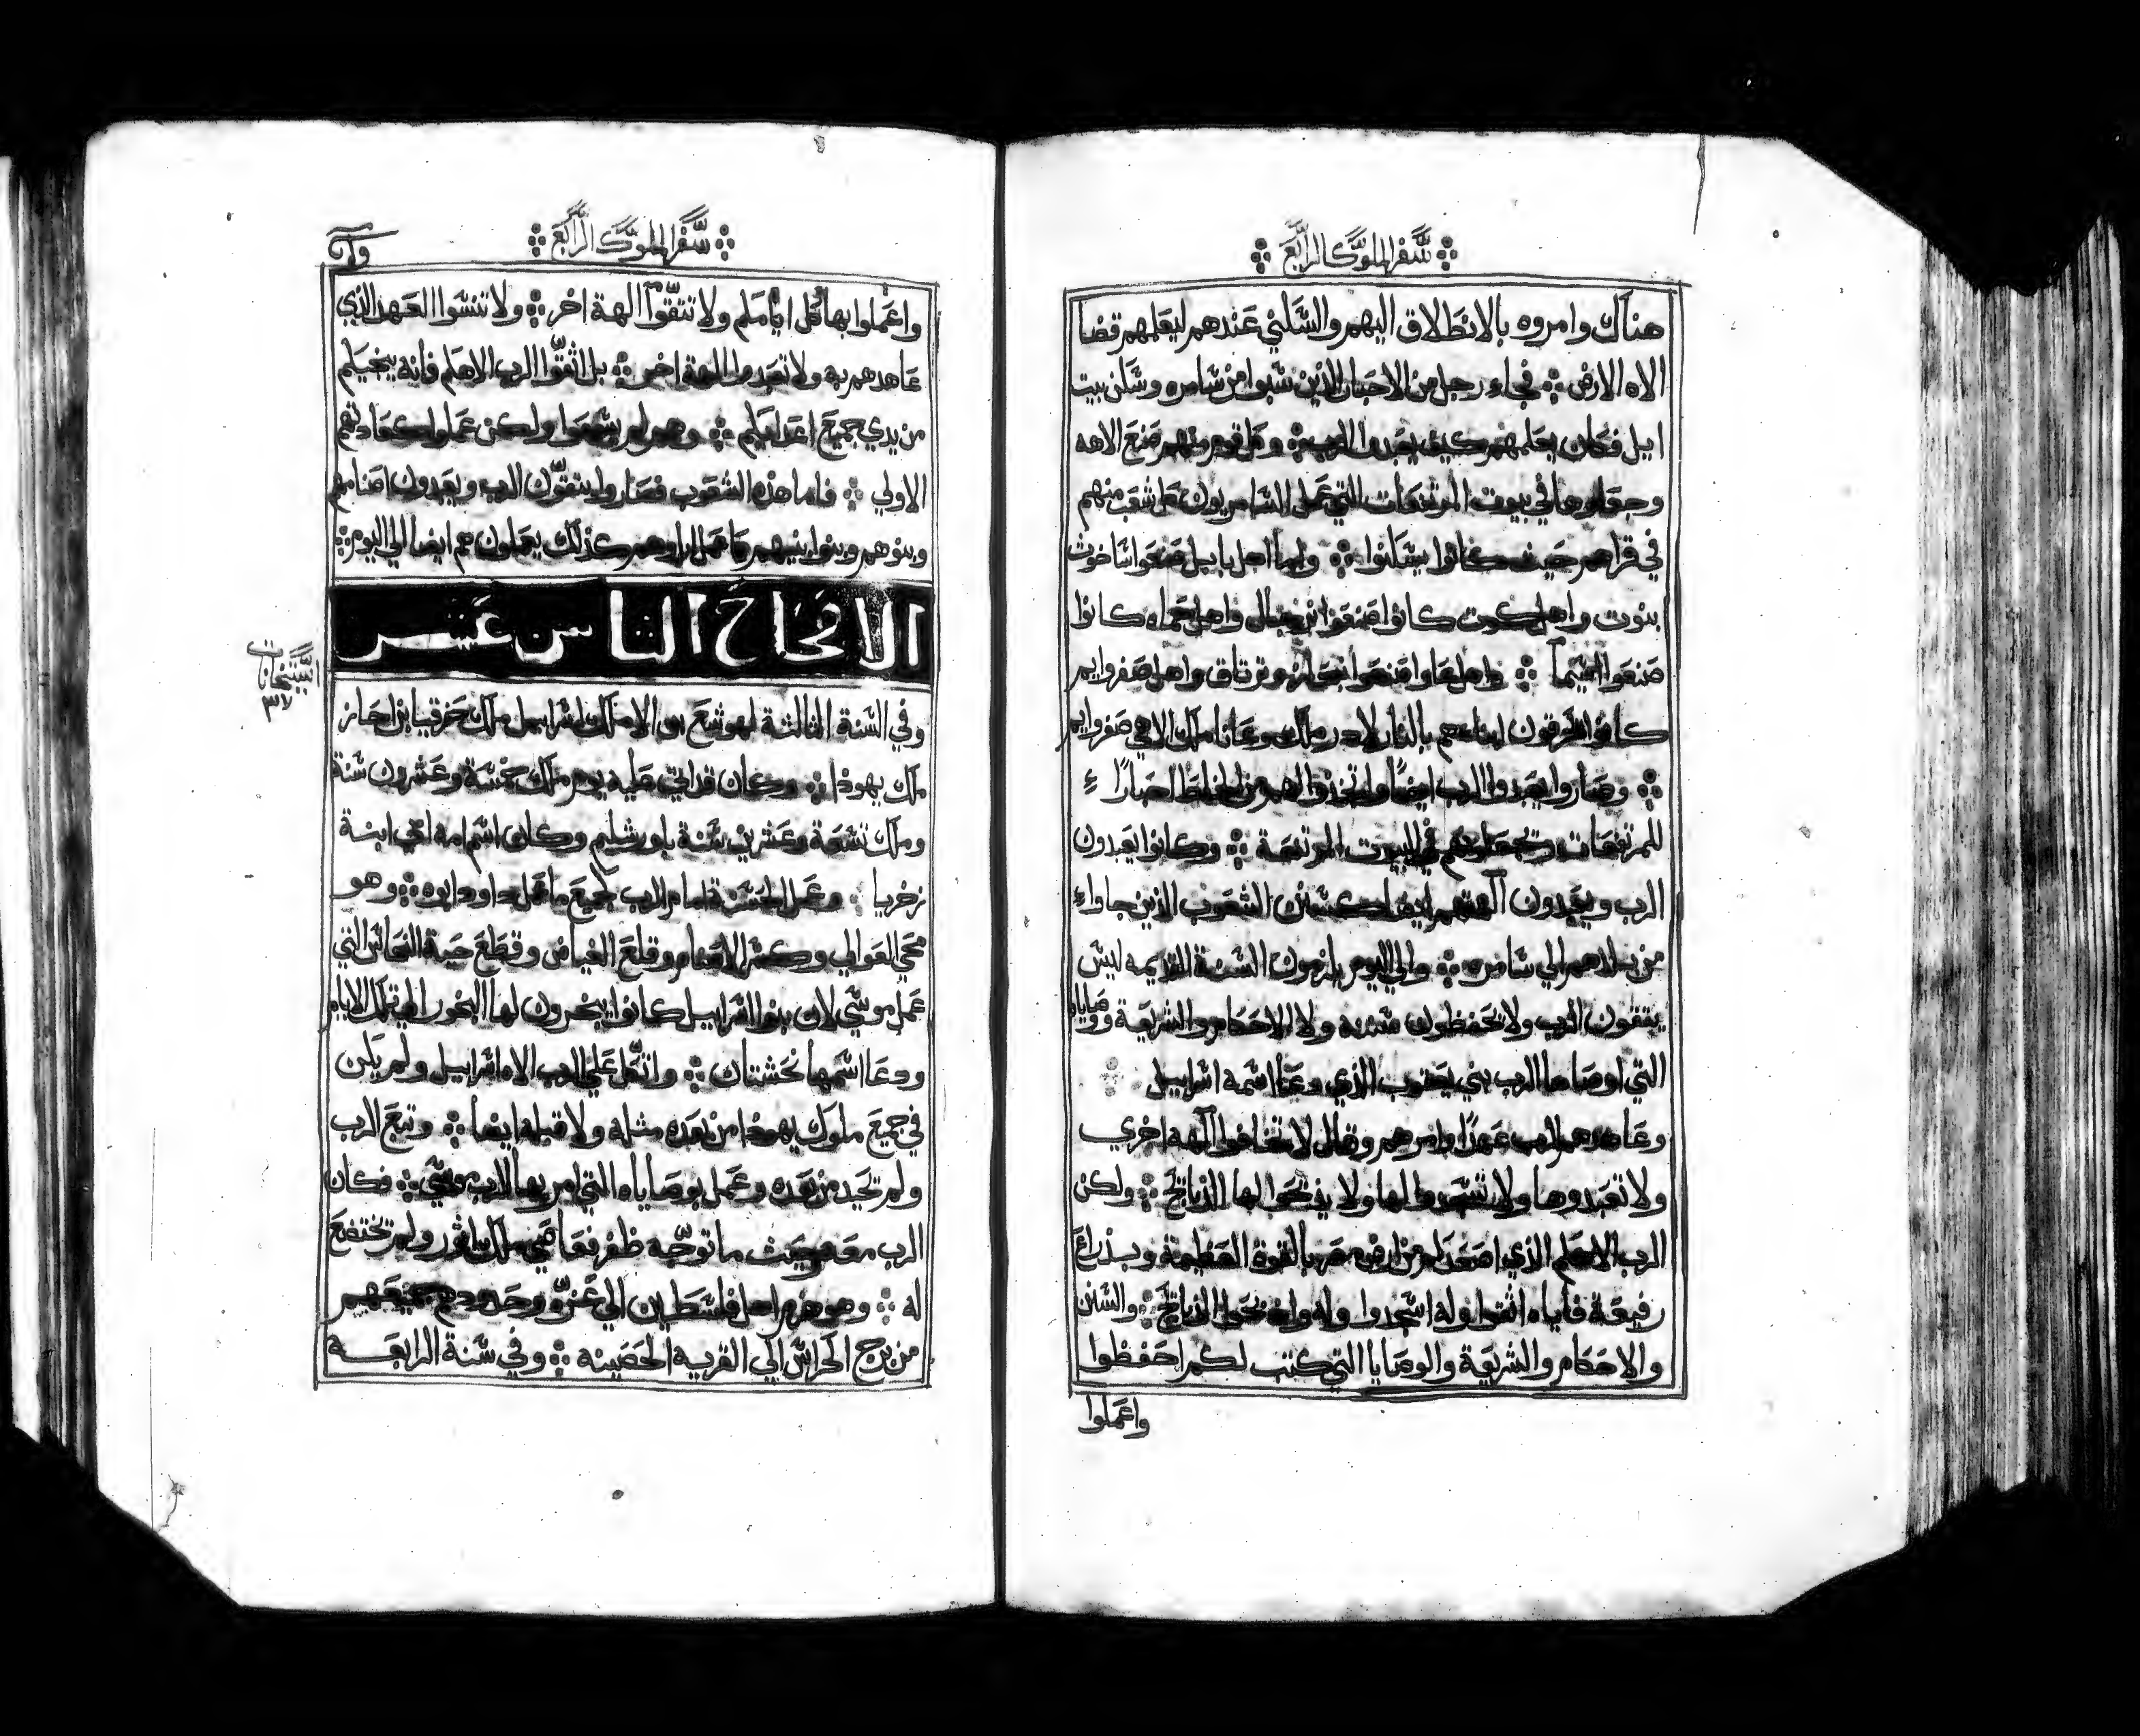 سفر الملوك الرابع
هناك وامروه بالانطلاق اليهم والسكني عندهم ليعلمهم قضا
الاه الارض فجاء رجل من الاحبار الذين سبوا من سامره وسكن بيت
ايل فكان يعلمهم كيف يعبدوا الرب وكل قوم منهم صنع الاهه
وجعلوها في بيوت المرتفعات التي عمل السامريون كل شعب منهم
في قراهم حيث كانوا يسكنوا واما اهل بابل صنعوا ساخوث
بنوت واهل كوت كانوا صنعوا واهل حماه كانوا
صنعوا اشيما واهل عاوا صنعوا وترتاق واهل صفروايم
كانوا يحرقون ابناهم بالنار لادرملك وعاناملك الاهي صفروايم
وصاروا يعبدوا الرب ايضا واتخذوا لهم من اخلاط احبارا
للمرتفعات في البيوت المرتفعة وكانوا يعبدون
الرب ويعبدون الهتهم ايضا كسنن الشعوب الذين جاواء
من بلادهم الي سامره والي اليوم يلزمون السنة القديمه ليس
يتقون الرب ولا يحفظون سننه ولا الاحكام والشريعة ووصاياه
التي اوصاها الرب بني يعقوب الذي دعا اسمه اسراييل
وعاهدهم الرب عهدا وامرهم وقال لا تخافوا آلهه اخري
ولا تعبدوها ولا تسجدوا لها ولا يذبحوا لها الذبايح ولكن
الرب الاهكم الذي اصعدكم من ارض مصر بالقوة العظيمة وبذراع
رفيعة فاياه اتقوا وله اسجدوا وله واذبحوا الذبايح والسنن
والاحكام والشريعة والوصايا التي كتب لكم احفظوا
واعملوا
سفر الملوك الرابع
واعملوا بها كل ايامكم ولا تتقوا آلهة اخر ولا تنسوا العهد الذي
عاهدهم به ولا تعبدوا الهة اخر بل اتقوا الرب الاهكم فانه ينجيكم
من يدي جميع اعدايكم وهم لم يسمعوا ولكن عملوا كعادتهم
الاولي فاما هذه الشعوب فصاروا يتقون الرب ويعبدون اصنامهم
وبنوهم وبنوا بنيهم كما عمل اباوهم كذلك يعملون هم ايضا الي اليوم
الافتاح الثامن عشر
وفي السنة الثالثة لهوشع بن الا ملك اسراييل ملك حزقيا بن احاز
ملك يهوذا وكان قد اتي عليه يوم ملك خمسة وعشرون سنة
وملك تسعة وعشرين سنة باورشليم وكان اسم امه ابي ابنة
زخريا وعمل الحسنة امام الرب كجميع ما عمل داود ابوه وهو
محي العوالي وكسر الاصنام وقلع الغياض وقطع حية النحاس التي
عمل موسي لان بنوا اسراييل كانوا يبخرون لها البخور الي تلك الايام
ودعا اسمها نخشتان واتكل علي الرب الاه اسراييل ولم يكن
في جميع ملوك يهوذا من بعده مثله ولا قبله ايضا وتبع الرب
ولم تحيد من بعده وعمل بوصاياه التي امر بها الرب موسي فكان
الرب معه وحيث ما توجه ظفر فعاصي ملك اثور ولم تختضع
له وهو هزم اهل فلسطين الي غزو وحدودهم جميعهم
من برج الحراس الي القريه الحصينه وفي سنة الرابعه